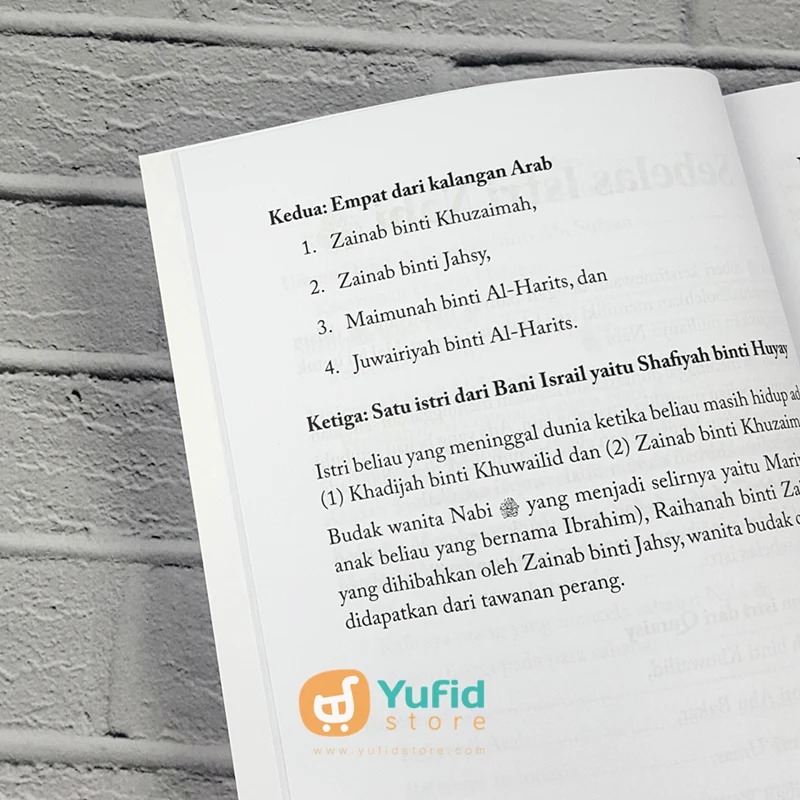 Kedua: Empat dari kalangan Arab
1. Zainab binti Khuzaimah,
2. Zainab binti Jahsy,
3. Maimunah binti Al-Harits, dan
4. Juwairiyah binti Al-Harits.
Ketiga: Satu istri dari Bani Israil yaitu Shafiyah binti Huyay
Istri beliau yang meninggal dunia ketika beliau masih hidup
(1) Khadijah binti Khuwailid dan (2) Zainab binti
Budak wanita Nabi ﷺ yang menjadi selirnya yaitu
anak beliau yang bernama Ibrahim), Raihanah binti
yang dihibahkan oleh Zainab binti Jahsy, wanita budak
didapatkan dari tawanan perang.
Yufid
store
www.yufidstore.com